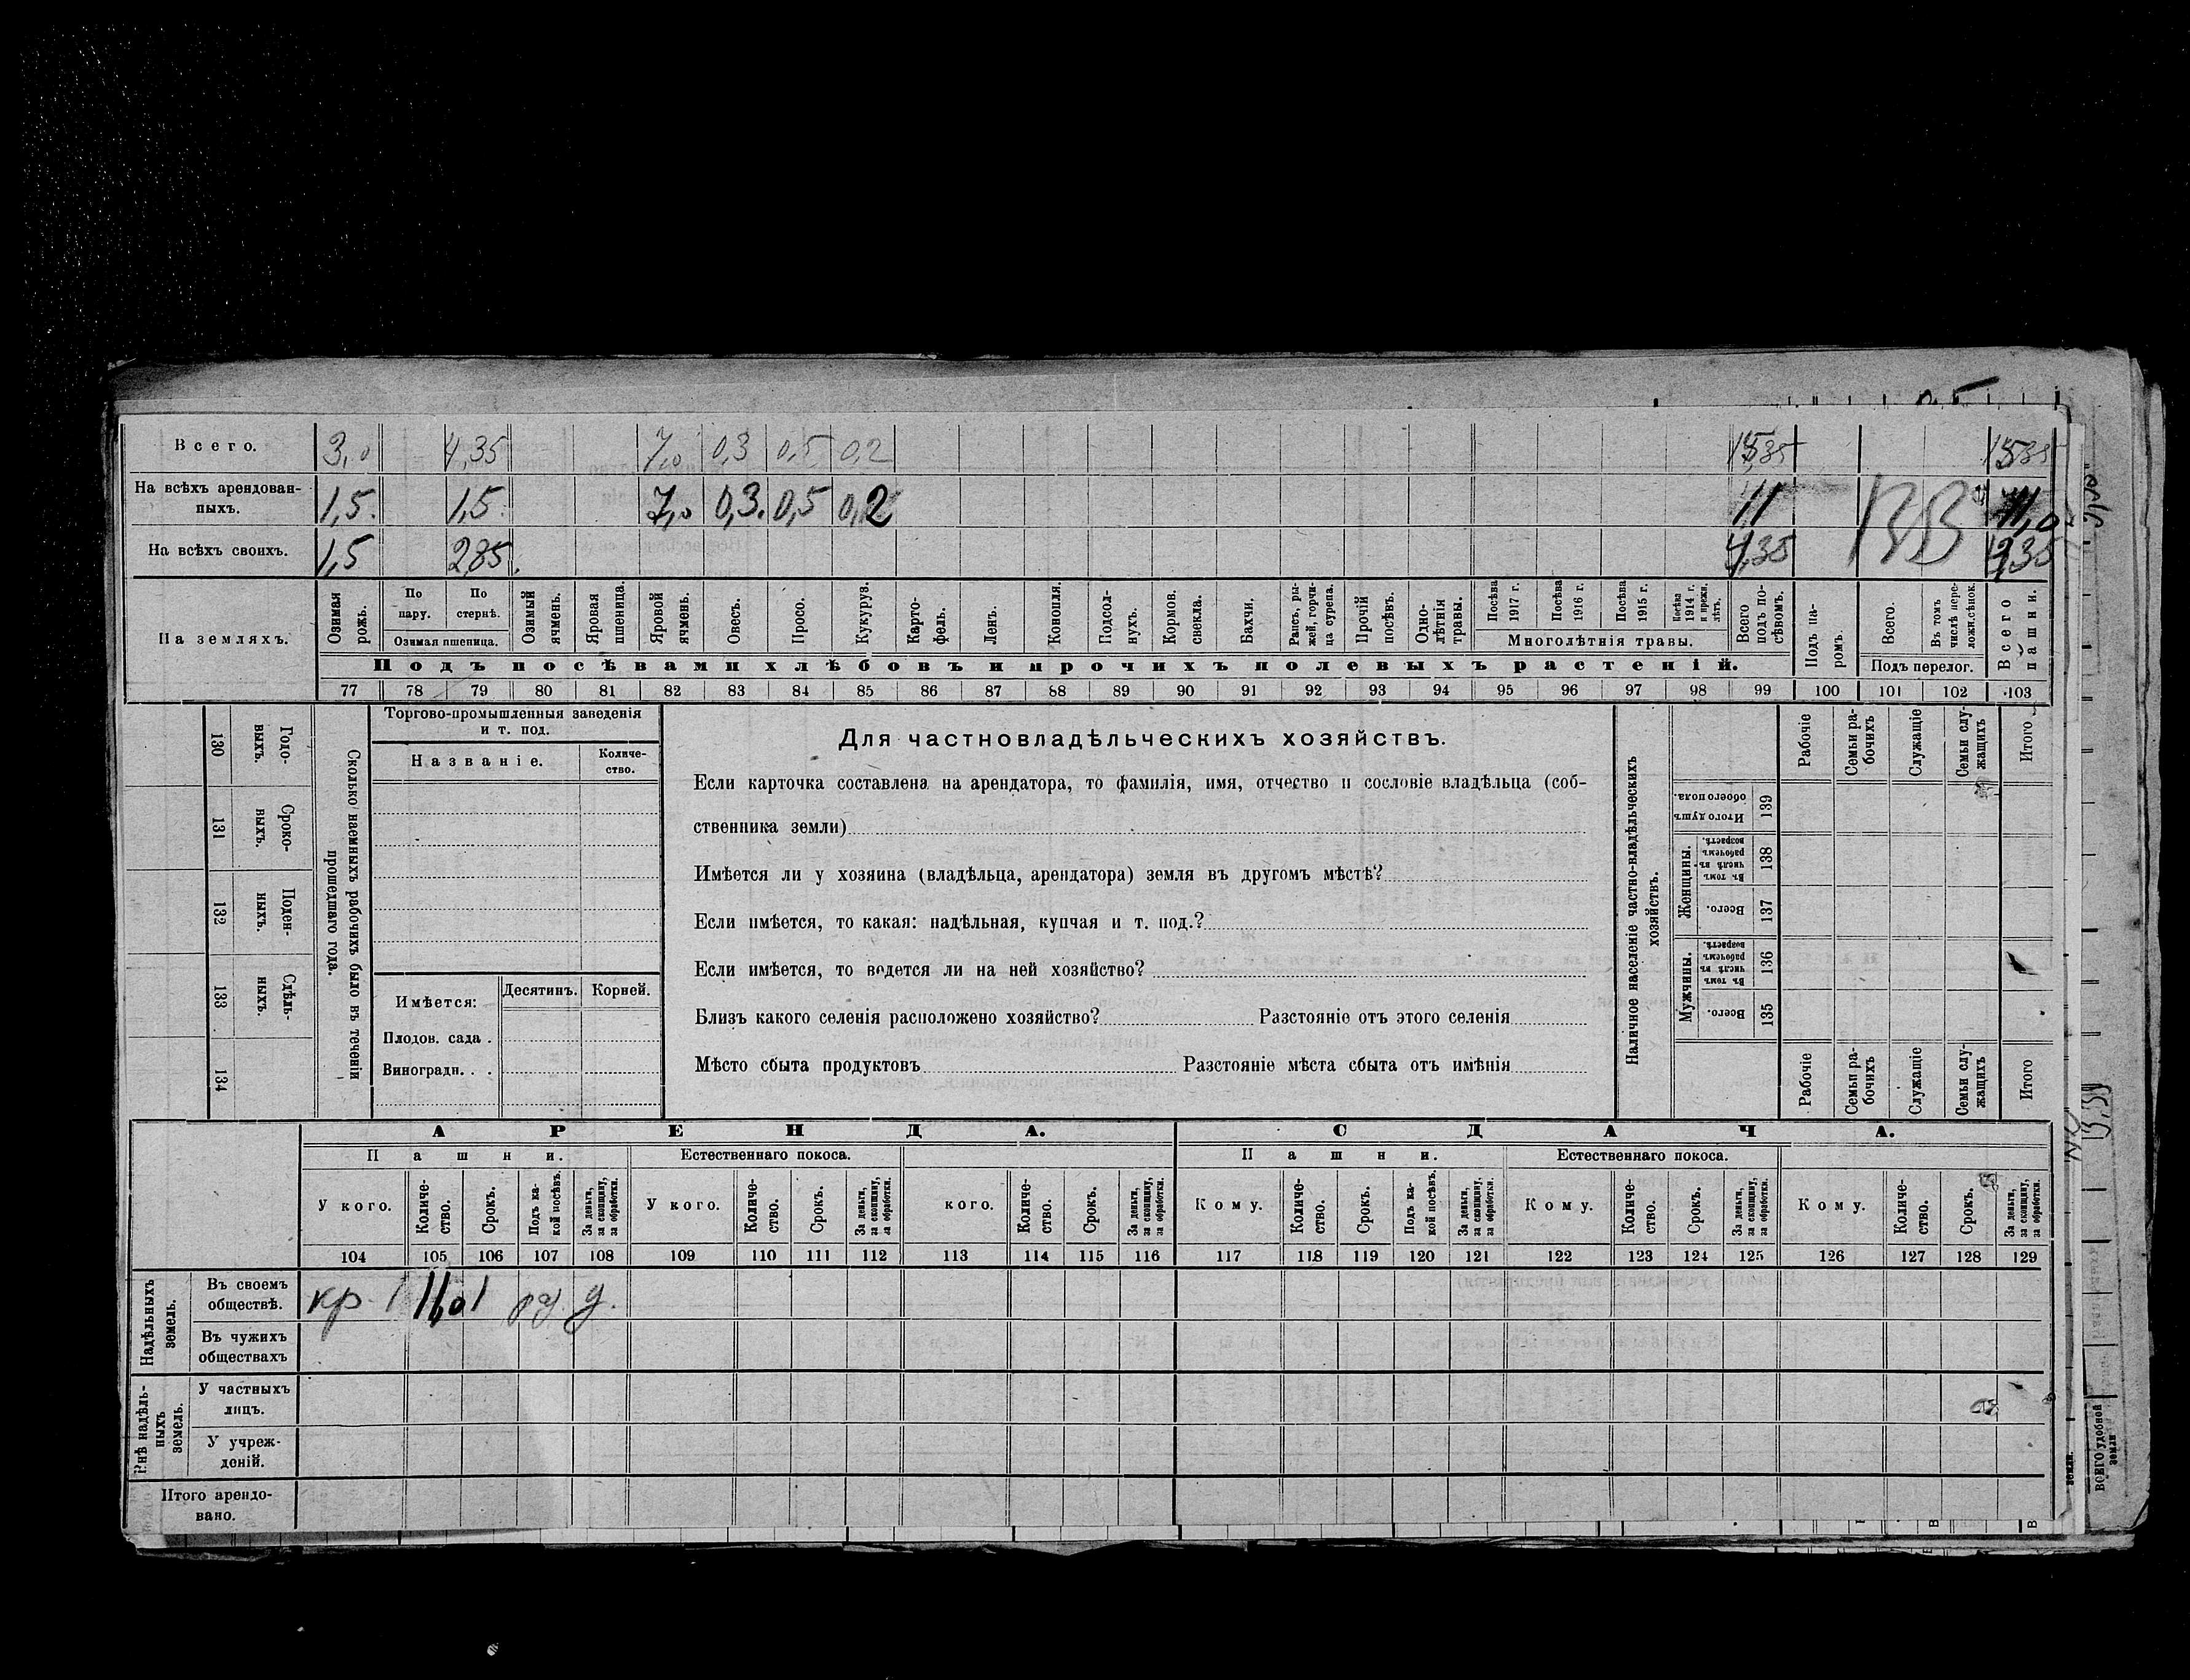 Всего. 3,0 4,35 7,0 0,3 0,5 0,2 15,35 15,35
На всѣхъ арендован-
ныхъ. 1,5. 1,5. 7,0 0,3. 0,5 0,2 11 11,0
На всѣхъ своихъ. 1,5 2,85. 4,35 4,35
На земляхъ.
Озимая рожь.
По пару.
По стернѣ.
Озимая пшеница.
Озимый ячмень.
Яровая пшеница.
Яровой ячмень.
Овесъ.
Просо.
Кукуруз.
Карто-
фель.
Ленъ.
Конопля.
Подсол-
нухъ.
Кормов. свекла.
Бахчи.
Рапсъ, ры-
жей, горчи-
ца сурепа.
Прочій посѣвъ.
Одно-
лѣтнія травы.
Посѣва 1917 г.
Посѣва 1916 г.
Посѣва 1915 г.
Посѣва 1914 г. и прежн. лѣтъ.
Многолѣтнія травы.
Всего подъ по-
сѣвомъ.
Подъ па-
ромъ.
Всего.
Въ томъ числѣ пере-
ложн.сѣнок.
Подъ перелог.
Всего пашни.
Подъ посѣвами хлѣбовъ и прочихъ полевыхъ растеній.
77 78 79 80 81 82 83 84 85 86 87 88 89 90 91 92 93 94 95 96 97 98 99 100 101 102 103
130 Годо-
выхъ.
131 Сроко-
ныхъ.
132 Поден-
ныхъ.
133 Сдѣль-
ныхъ.
134
Сколько наемныхъ рабочихъ было въ теченіи
прошедшаго года.
Торгово-промышленныя заведенія
и т. под.
Названіе.
Количе-
ство.
Имѣется:
Десятинъ. Корней.
Плодов. сада .
Виноградн. . .
Для частновладѣльческихъ хозяйствъ.
Если карточка составлена на арендатора, то фамилія, имя, отчество и сословіе владѣльца (соб-
ственника земли)
Имѣется ли у хозяина (владѣльца, арендатора) земля въ другомъ мѣстѣ?
Если имѣется, то какая: надѣльная, купчая и т. под.?
Если имѣется, то ведется ли на ней хозяйство?
Близъ какого селенія расположено хозяйство? Разстояніе отъ этого селенія
Мѣсто сбыта продуктовъ Разстояніе мѣста сбыта отъ имѣнія
Наличное населеніе частно-владѣльческихъ
хозяйствъ.
Рабочіе
Семьи ра-
бочихъ
Служащіе
Семьи слу-
жащихъ
Итого
Итого душъ обоего пола. 139
Женщины.
Въ томъ числѣ въ рабочемъ возрастѣ. 138
Всего. 137
Мужчины.
Въ томъ числѣ въ рабочемъ возрастѣ. 136
Всего. 135
Рабочіе
Семьи ра-
бочихъ
Служащіе
Семьи слу-
жащихъ
Итого
АРЕНДА. СДАЧА.
Пашни. Естественнаго покоса. Пашни. Естественнаго покоса.
У кого.
Количе-
ство.
Срокъ.
Подъ ка-
кой посѣвъ.
За деньги, за скопщину, за обработки.
У кого.
Количе-
ство.
Срокъ.
За деньги, за скопщину, за обработки.
кого.
Количе-
ство.
Срокъ.
За деньги, за скопщину, за обработки.
Кому.
Количе-
ство.
Срокъ.
Подъ ка-
кой посѣвъ.
За деньги, за скопщину, за обработки.
Кому.
Количе-
ство.
Срокъ.
За деньги, за скопщину, за обработки.
Кому.
Количе-
ство.
Срокъ.
За деньги, за скопщину, за обработки.
104 105 106 107 108 109 110 111 112 113 114 115 116 117 118 119 120 121 122 123 124 125 126 127 128 129
Надѣльныхъ
земель.
Въ своемъ
обществѣ. кр. 11,0 1 д.
Въ чужихъ
обществахъ
Внѣ надѣль-
ныхъ
земель.
У частныхъ
лицъ.
У учреж-
деній.
Итого арендо-
вано.
Всего удобной
земли
земли.